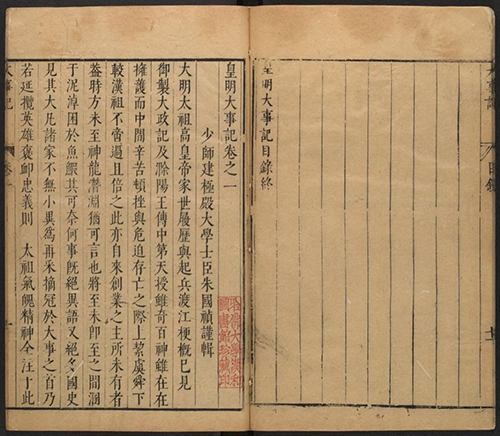 皇明大事記目録終
皇明大事記卷之一
少師建極殿大學士臣朱國禎謹輯
大明太祖高皇帝家世履歷與起兵渡江梗概已見
御製大政記及滁陽王傳中第天授雖奇百神雖在在
擁護而中間辛苦頓挫與危迫存亡之際上絜虞舜下
較漢祖不啻過且倍之此亦自來創業之主所未有者
葢時方未至神龍潛淵猶可言也將至未卽至之間溷
於泥淖困於魚鰕其可奈何事旣絕異語又絕多國史
見其大凡諸家不無小異爲再釆摘冠於大事之首乃
若延攬英雄褒卹忠義則 太祖氣魄精神全注于此
大事記
卷一